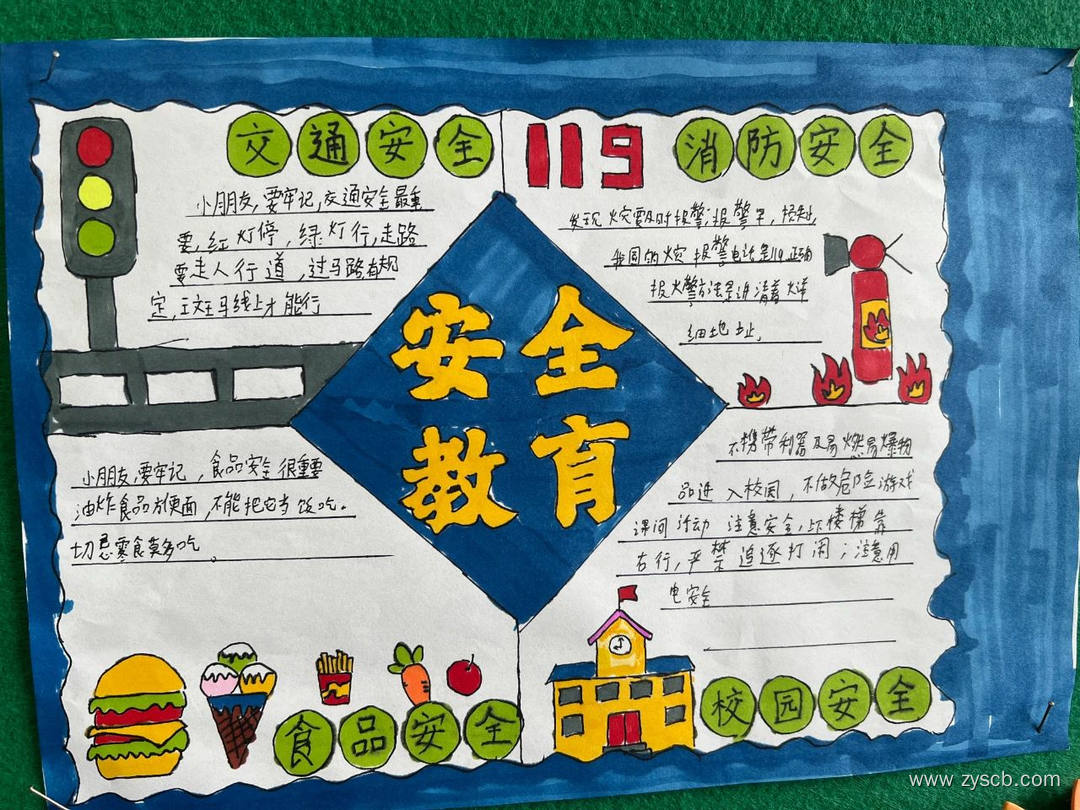 交通安全
小朋友,要牢记,交通安全最重
要,红灯停,绿灯行,走路
要走人行道,过马路有规
定,斑马线上才能行
119
消防安全
发现火灾要及时报警,报警早,损失小,
我国的火灾报警电话是119.正确
报火警方法是讲清着火详
细地址,
安全
教育
小朋友,要牢记,食品安全很重要
油炸食品方便面,不能把它当饭吃。
切忌零食莫多吃。
食品安全
不携带利器及易燃易爆物
品进入校园,不做危险游戏
课间活动 注意安全,上下楼梯靠
右行,严禁追逐打闹;注意用
电安全
校园安全
www.zyscb.com